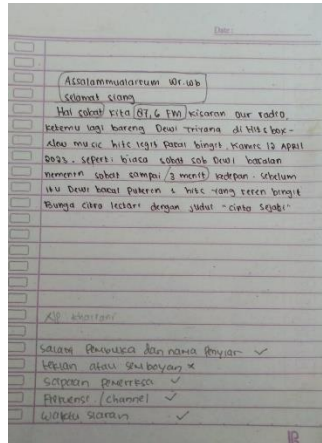 Date:
Assalammualaikum Wr.wb
Selamat siang
Hai sobat kita 87,6 FM kisaran our radio,
ketemu lagi bareng Dewi Trirana di Hits box-
New music hits legit padat bingit, Kamis 12 April
2023. seperti biasa sobat sob Dewi bacalan
nemenin sobat sampai 3 menit kedepan. sebelum
itu Dewi bacal puterin 1 hits yang keren bingit
Bunga citra lestari dengan judul "cinta sejati"
Salam Pembuka dan nama Penyiar ✓
tekian atau semboyan ×
sapaan pemeriksa ✓
Frekuensi / channel ✓
waktu siaran ✓